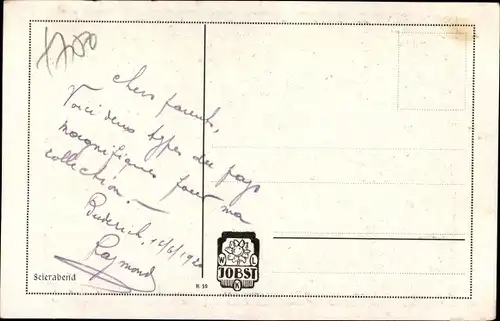 Chers parents,
Voici deux types du pays
magnifiques pour ma
collection.
Büderich, 12/6/192
Raymond
Feierabend
R 59
W L
JOBST
K